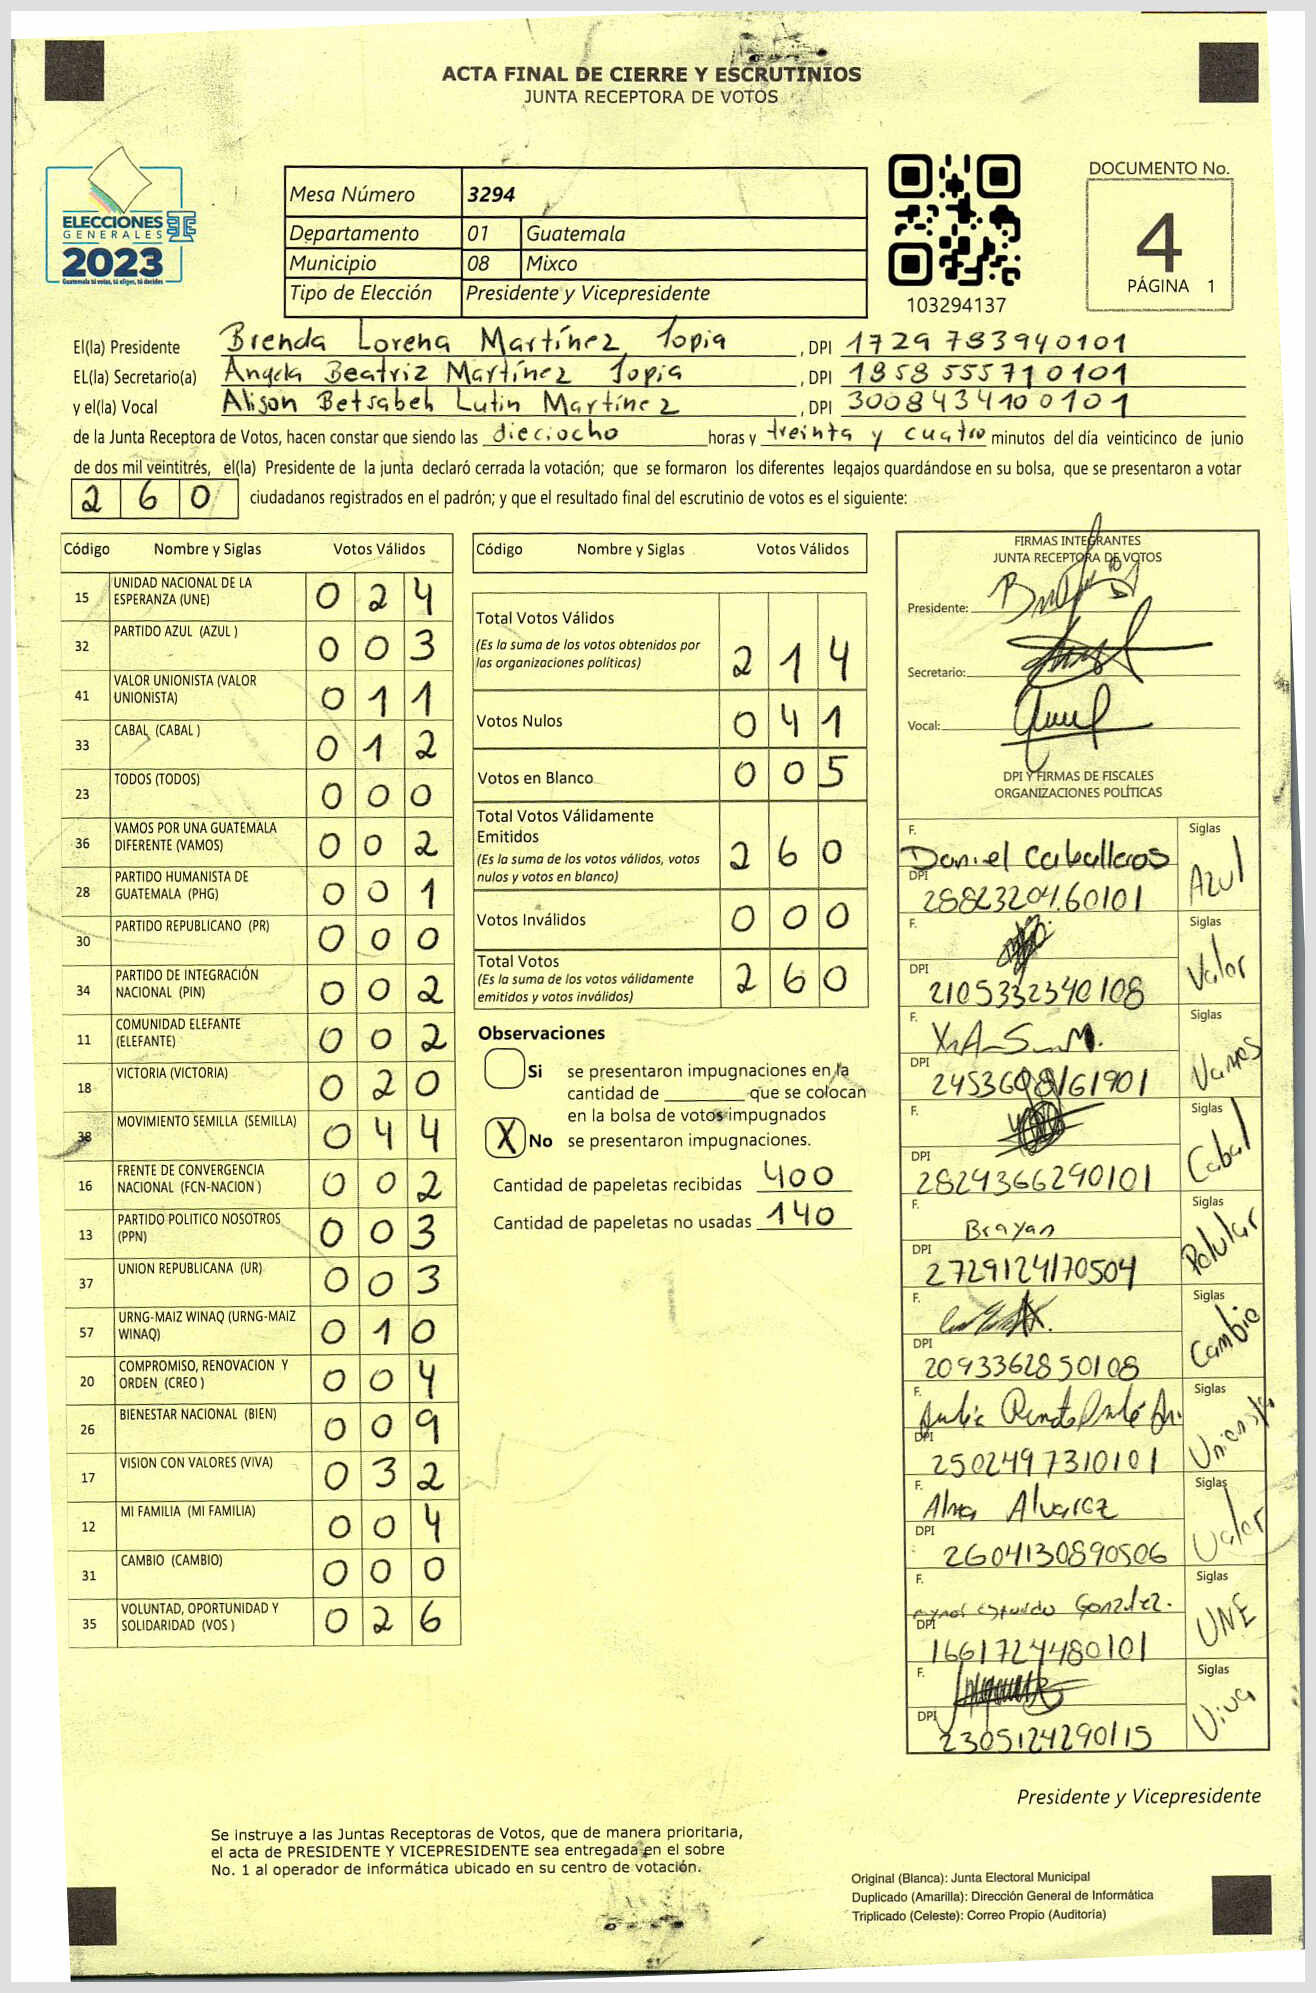 ACTA FINAL DE CIERRE Y ESCRUTINIOS
JUNTA RECEPTORA DE VOTOS
ELECCIONES
GENERALES
2023
Guatemala tú votas, tú eliges, tú decides
Mesa Número 3294
Departamento 01 Guatemala
Municipio 08 Mixco
Tipo de Elección Presidente y Vicepresidente
103294137
DOCUMENTO No.
4
PÁGINA 1
El(la) Presidente Brenda Lorena Martínez Topia , DPI 1729 783940101
EL(la) Secretario(a) Angela Beatriz Martínez Topia , DPI 1858 555710101
y el(la) Vocal Alison Betsabeh Lutin Martínez , DPI 3008434100101
de la Junta Receptora de Votos, hacen constar que siendo las dieciocho horas y treinta y cuatro minutos del día veinticinco de junio
de dos mil veintitrés, el(la) Presidente de la junta declaró cerrada la votación; que se formaron los diferentes legajos guardándose en su bolsa, que se presentaron a votar
260 ciudadanos registrados en el padrón; y que el resultado final del escrutinio de votos es el siguiente:
Código Nombre y Siglas Votos Válidos
15 UNIDAD NACIONAL DE LA ESPERANZA (UNE) 024
32 PARTIDO AZUL (AZUL ) 003
41 VALOR UNIONISTA (VALOR UNIONISTA) 011
33 CABAL (CABAL ) 012
23 TODOS (TODOS) 000
36 VAMOS POR UNA GUATEMALA DIFERENTE (VAMOS) 002
28 PARTIDO HUMANISTA DE GUATEMALA (PHG) 001
30 PARTIDO REPUBLICANO (PR) 000
34 PARTIDO DE INTEGRACIÓN NACIONAL (PIN) 002
11 COMUNIDAD ELEFANTE (ELEFANTE) 002
18 VICTORIA (VICTORIA) 020
38 MOVIMIENTO SEMILLA (SEMILLA) 044
16 FRENTE DE CONVERGENCIA NACIONAL (FCN-NACION ) 002
13 PARTIDO POLITICO NOSOTROS (PPN) 003
37 UNION REPUBLICANA (UR) 003
57 URNG-MAIZ WINAQ (URNG-MAIZ WINAQ) 010
20 COMPROMISO, RENOVACION Y ORDEN (CREO ) 004
26 BIENESTAR NACIONAL (BIEN) 009
17 VISION CON VALORES (VIVA) 032
12 MI FAMILIA (MI FAMILIA) 004
31 CAMBIO (CAMBIO) 000
35 VOLUNTAD, OPORTUNIDAD Y SOLIDARIDAD (VOS ) 026
Código Nombre y Siglas Votos Válidos
Total Votos Válidos
(Es la suma de los votos obtenidos por las organizaciones políticas) 214
Votos Nulos 041
Votos en Blanco 005
Total Votos Válidamente Emitidos
(Es la suma de los votos válidos, votos nulos y votos en blanco) 260
Votos Inválidos 000
Total Votos
(Es la suma de los votos válidamente emitidos y votos inválidos) 260
Observaciones
Si se presentaron impugnaciones en la
cantidad de ________ que se colocan
en la bolsa de votos impugnados
X No se presentaron impugnaciones.
Cantidad de papeletas recibidas 400
Cantidad de papeletas no usadas 140
FIRMAS INTEGRANTES
JUNTA RECEPTORA DE VOTOS
Presidente:
Secretario:
Vocal:
DPI Y FIRMAS DE FISCALES
ORGANIZACIONES POLÍTICAS
F. Daniel Caballeros Siglas Azul
DPI 2882320460101
F. Siglas Valor
DPI 2105332340108
F. Siglas Vamos
DPI
F. Siglas Cabal
DPI 2824366290101
F. Brayan Siglas
DPI 2729124170504
F. Siglas Cambio
DPI 2093362850108
F. Siglas
DPI 2502497310101
F. Alma Alvarez Siglas Valor
DPI 2604130890506
F. Gonzalez. Siglas UNE
DPI 1661724480101
F. Siglas Viva
DPI 2305124290115
Presidente y Vicepresidente
Se instruye a las Juntas Receptoras de Votos, que de manera prioritaria,
el acta de PRESIDENTE Y VICEPRESIDENTE sea entregada en el sobre
No. 1 al operador de informática ubicado en su centro de votación.
Original (Blanca): Junta Electoral Municipal
Duplicado (Amarilla): Dirección General de Informática
Triplicado (Celeste): Correo Propio (Auditoría)